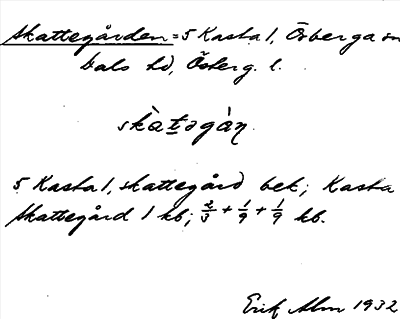 Skattegården = 5 Kasta 1, Örberga sn
Dals hd, Österg. l.
skàtəgàn.
5 Kasta 1, skattegård bet; Kasta
Skattegård 1 kb; 2/3 + 1/9 + 1/9 kb.
Erik Alm 1932